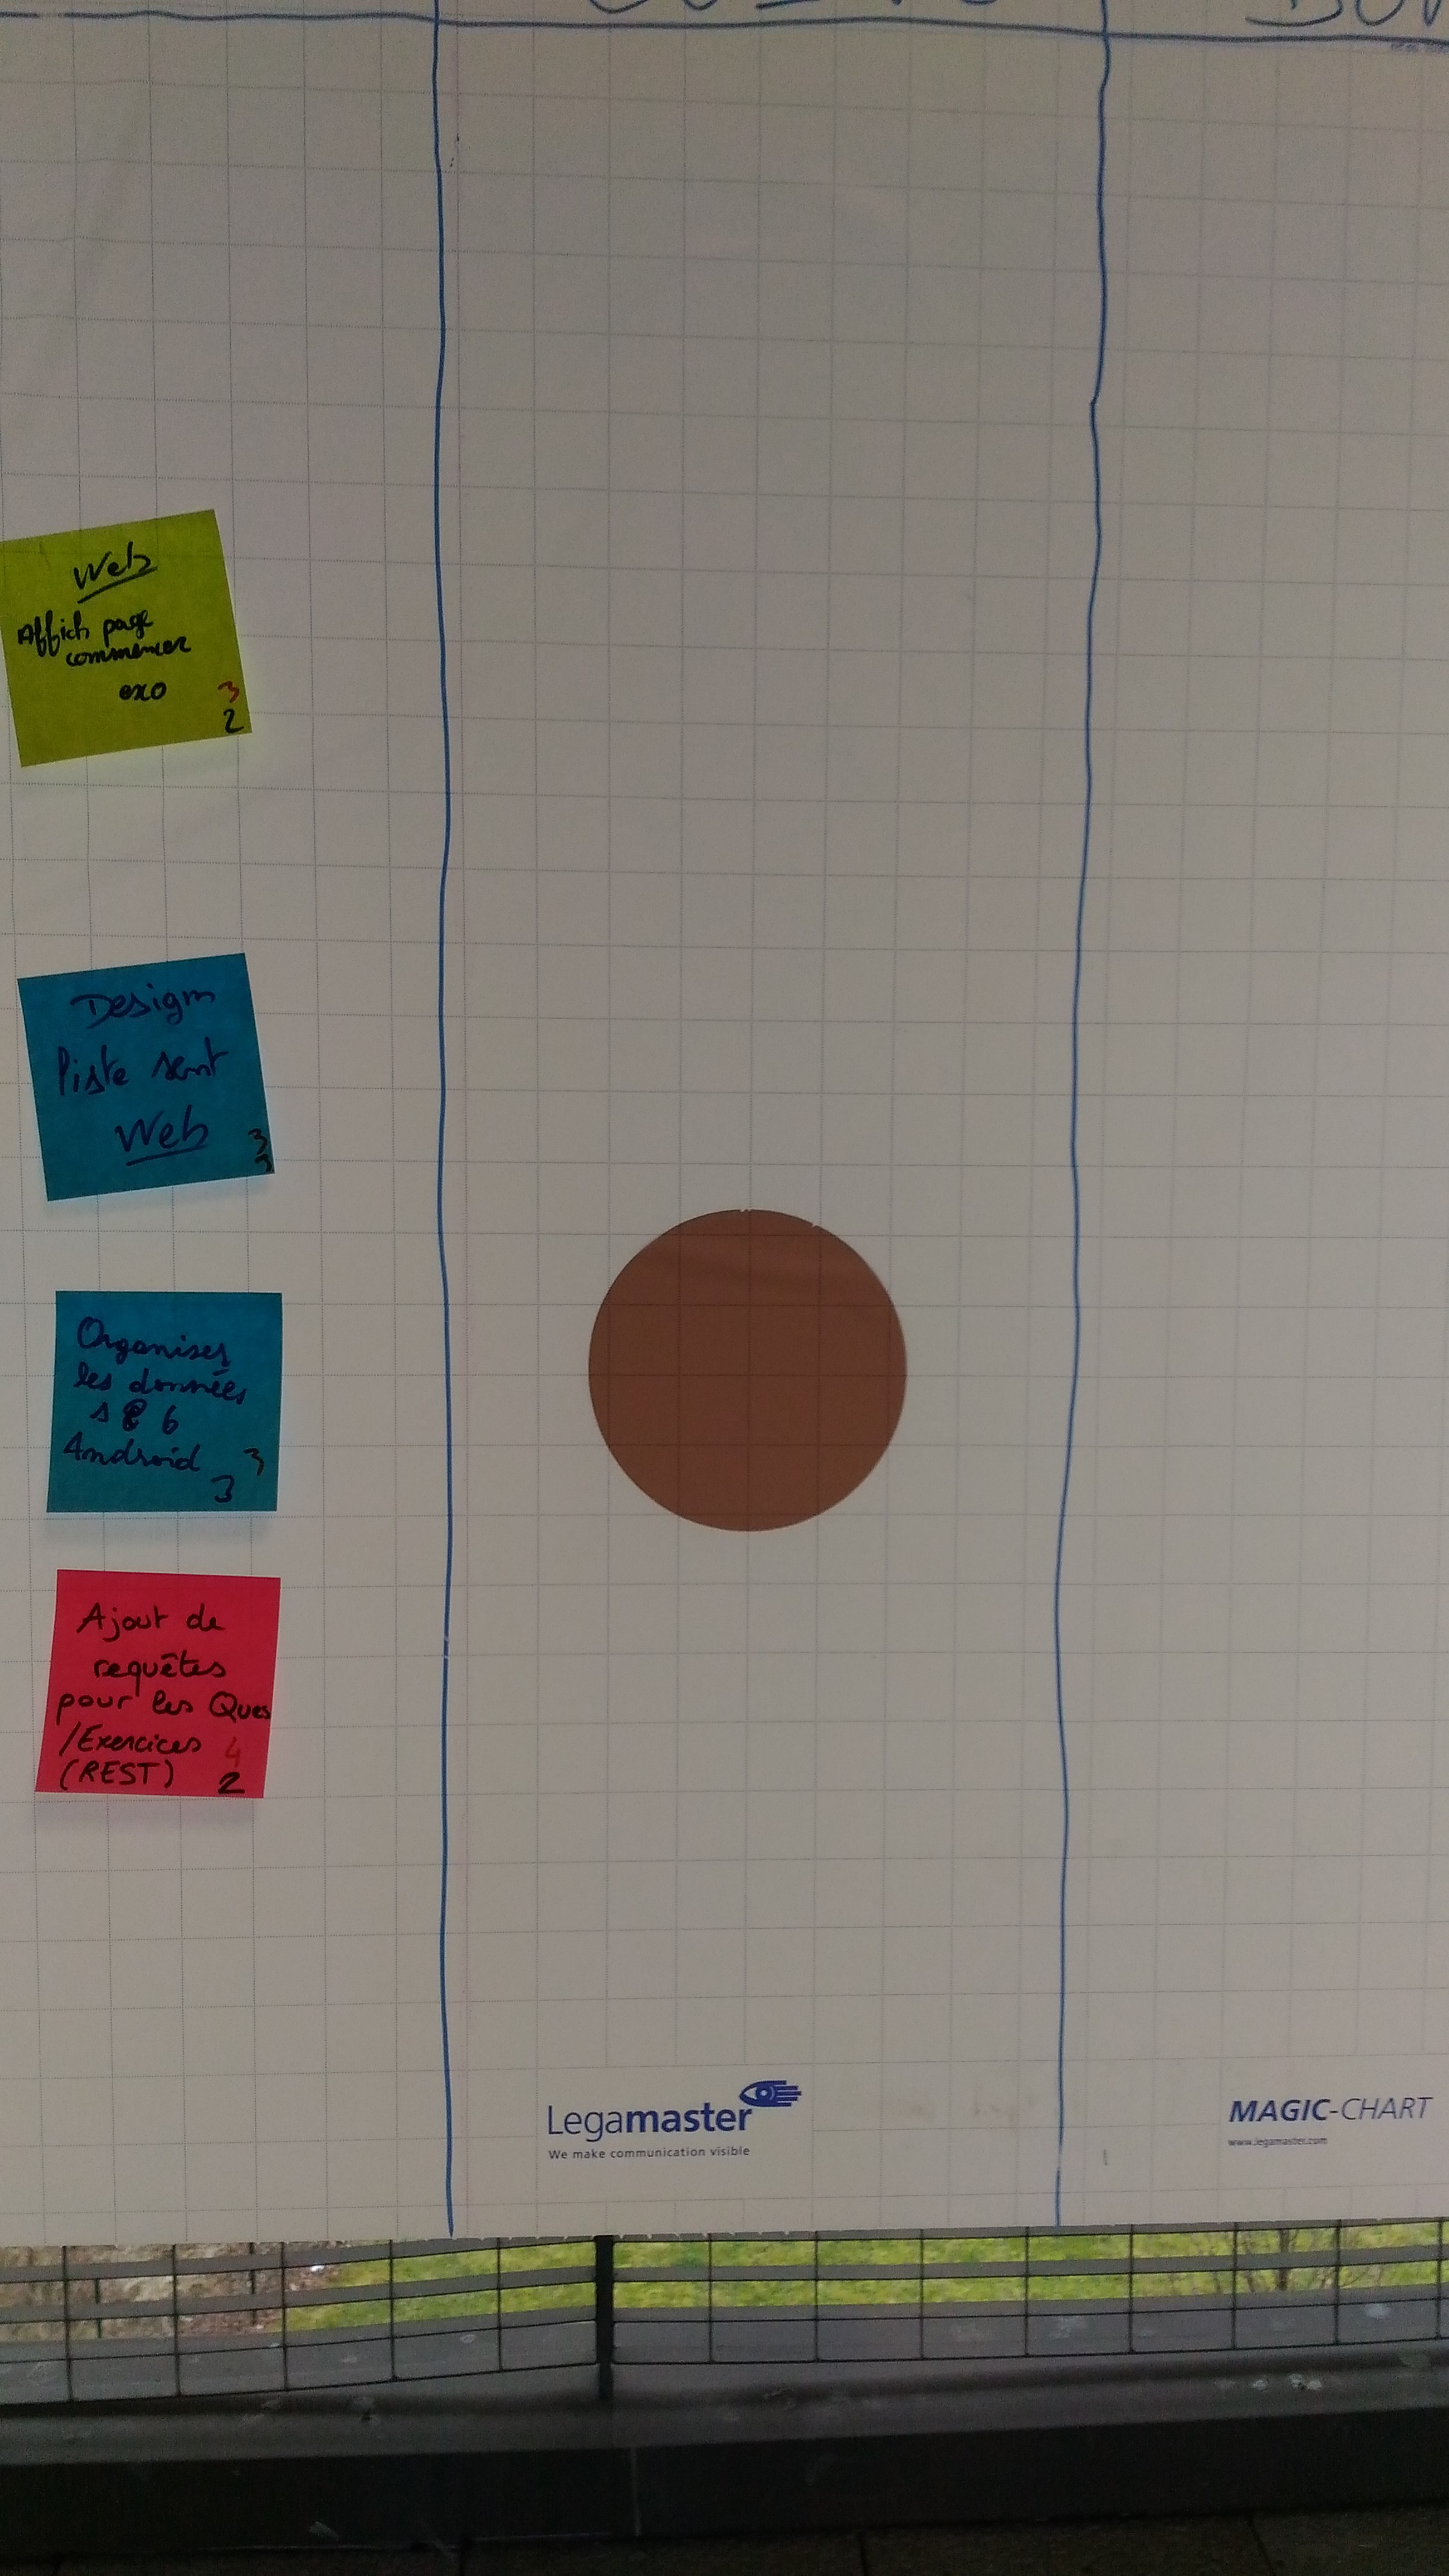 Web
Affich page
commencer
exo
3
2
Design
liste sent
Web
3
3
Organiser
les données
Android
3
3
Ajout de
requêtes
pour les Ques
/Exercices
4
(REST)
2
Legamaster
We make communication visible
MAGIC-CHART
www.legamaster.com